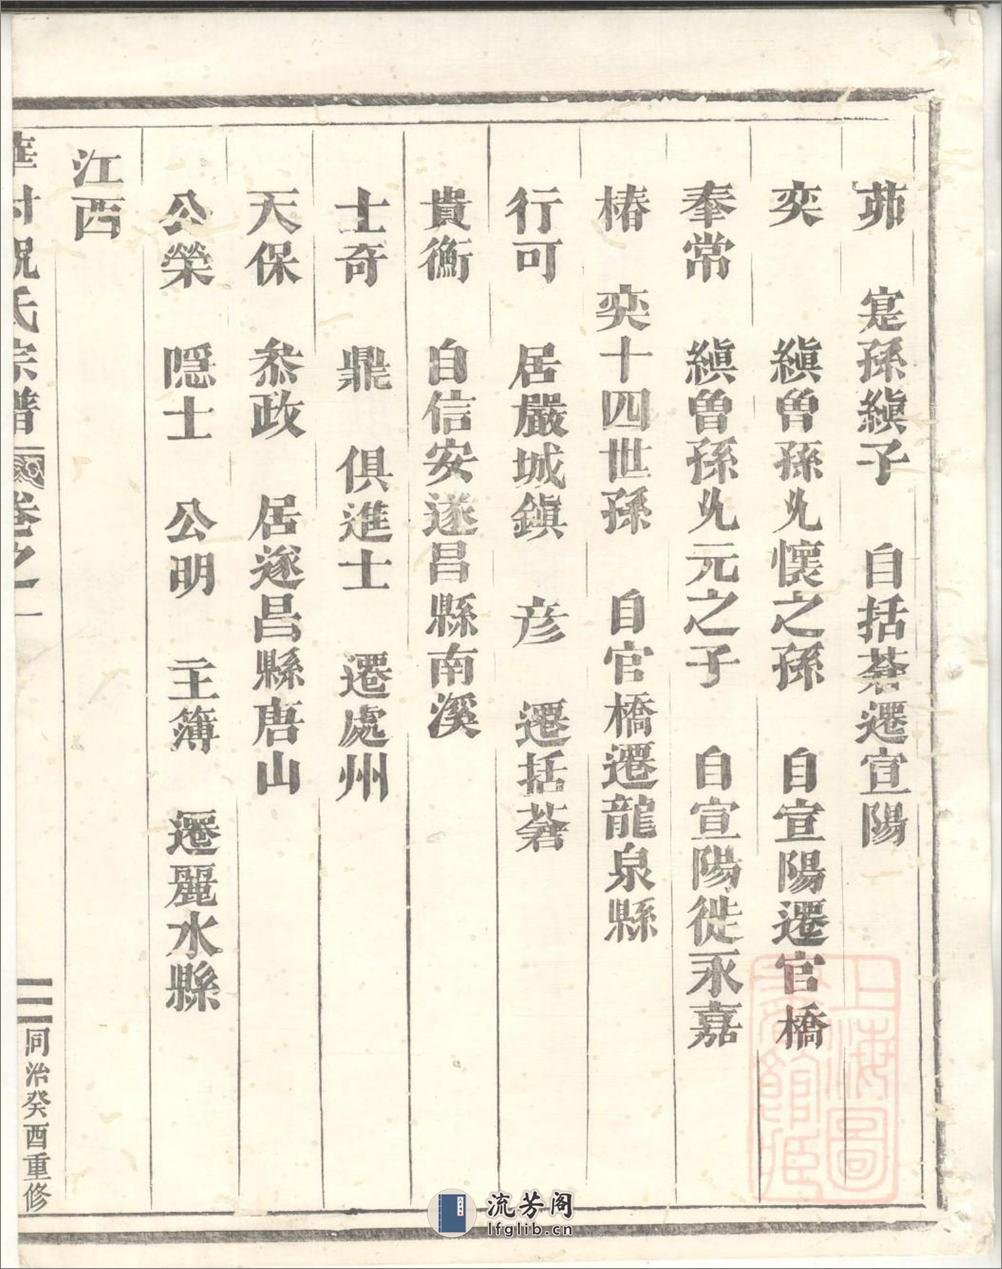 茆 寔孫縝子 自括蒼遷宣陽
奕 縝曾孫允懷之孫 自宣陽遷官橋
奉常 縝曾孫允元之子 自宣陽徙永嘉
椿 奕十四世孫 自官橋遷龍泉縣
行可 居嚴城鎭 彦 遷括蒼
貴衡 自信安遂昌縣南溪
士奇 鼎 俱進士 遷處州
天保 叅政 居遂昌縣唐山
公榮 隱士 公明 主簿 遷麗水縣
江西
村祝氏宗譜 卷之一 同治癸酉重修
上海圖
流芳阁
lfglib.cn